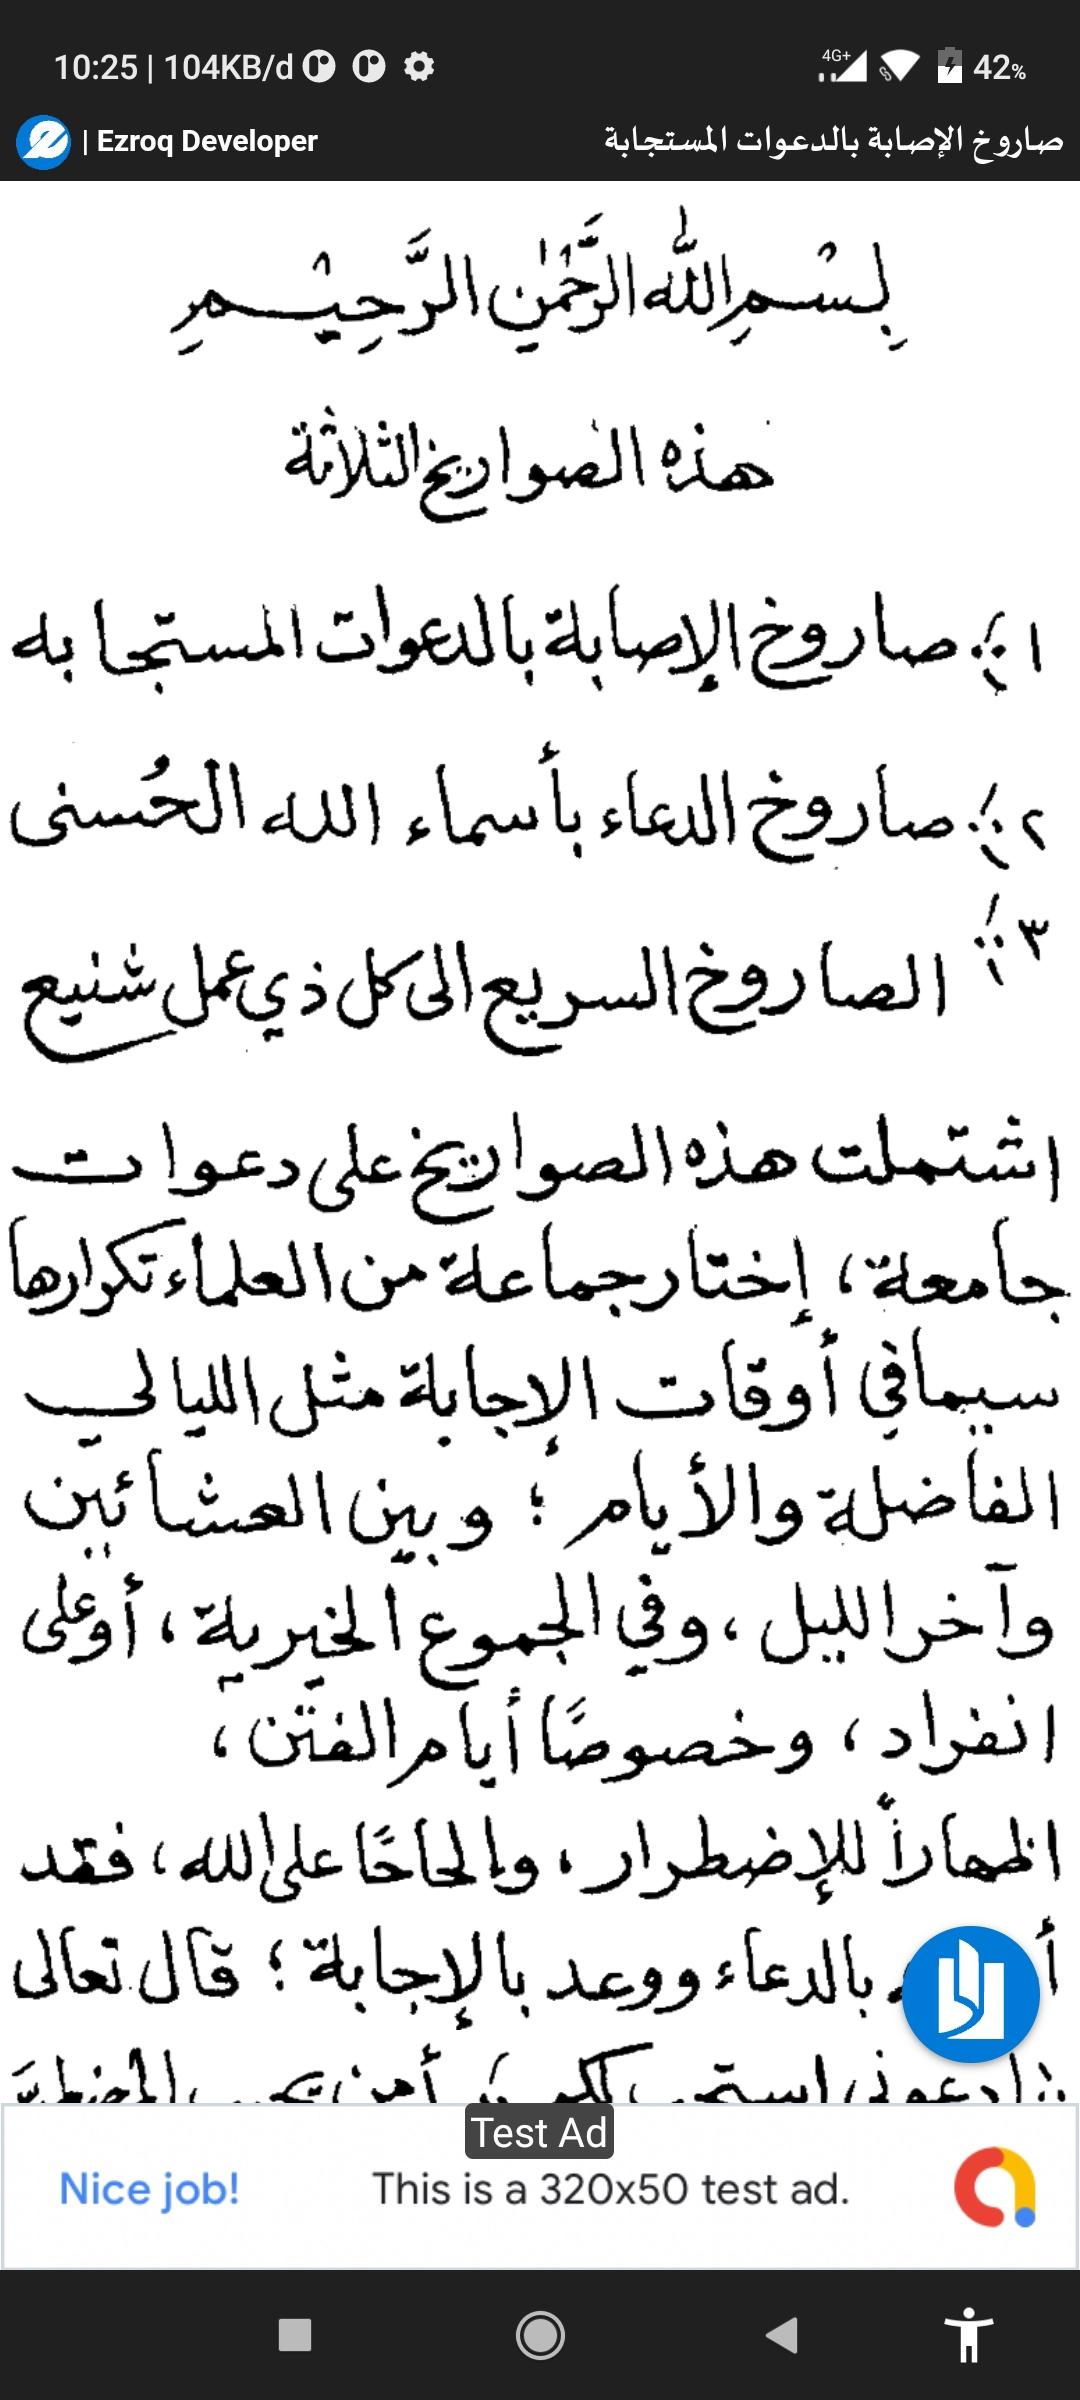 10:25 | 104KB/d 4G+ 42%
| Ezroq Developer صاروخ الإصابة بالدعوات المستجابة
بِسْمِ اللهِ الرَّحْمٰنِ الرَّحِيْمِ
هذه الصواريخ الثلاثة
١ صاروخ الإصابة بالدعوات المستجابه
٢ صاروخ الدعاء بأسماء الله الحُسنى
٣ الصاروخ السريع الى كل ذي عمل شنيع
اشتملت هذه الصواريخ على دعوات
جامعة، إختار جماعة من العلماء تكرارها
سيما في أوقات الإجابة مثل الليالي
الفاضلة والأيام ؛ وبين العشائين
وآخر الليل، وفي الجموع الخيرية، أو على
انفراد، وخصوصًا أيام الفتن،
اظهاراً للإضطرار، وإلحاحًا على الله، فقد
بالدعاء ووعد بالإجابة ؛ قال تعالى
ادعوني استجب لكم أمن يجيب المضطرَّ
Test Ad
Nice job! This is a 320x50 test ad.